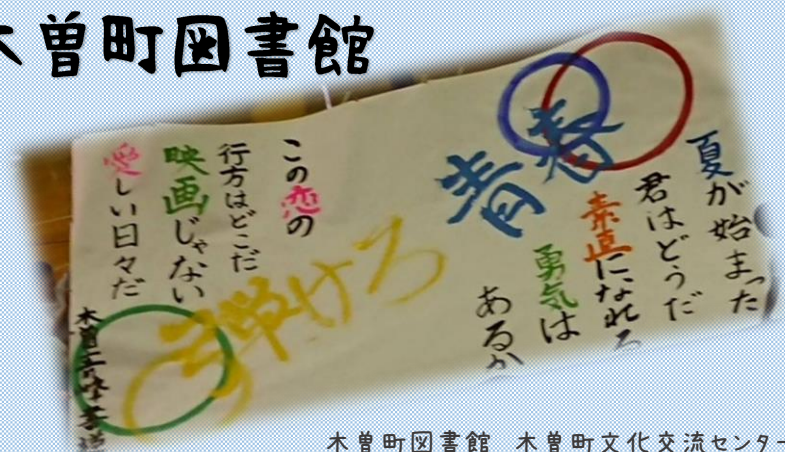 木曽町図書館
夏が始まった
君はどうだ
素直になれる
勇気は
あるか
青春
弾けろ
この恋の
行方はどこだ
映画じゃない
愛しい日々だ
木曽青峰書道
木曽町図書館 木曽町文化交流センター